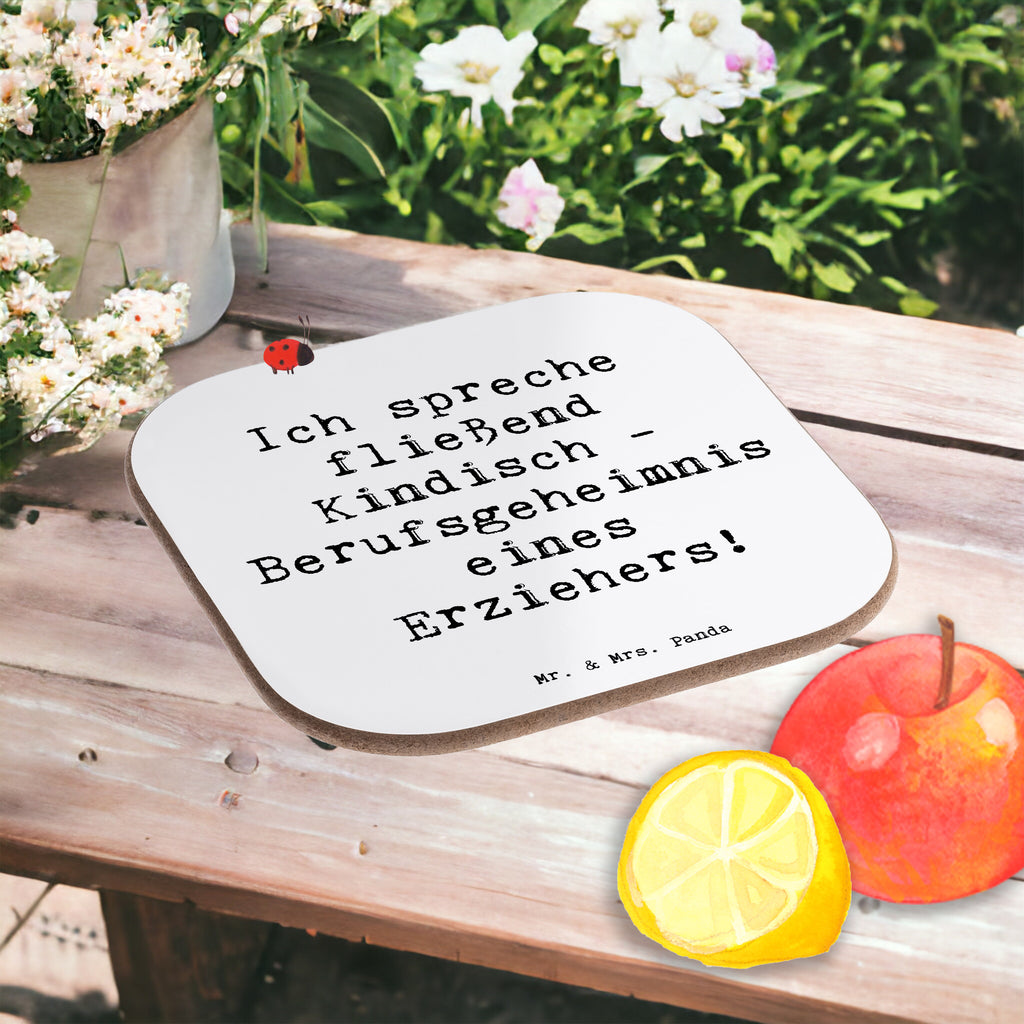 Ich spreche
fließend
Kindisch -
Berufsgeheimnis
eines
Erziehers!
Mr. & Mrs. Panda